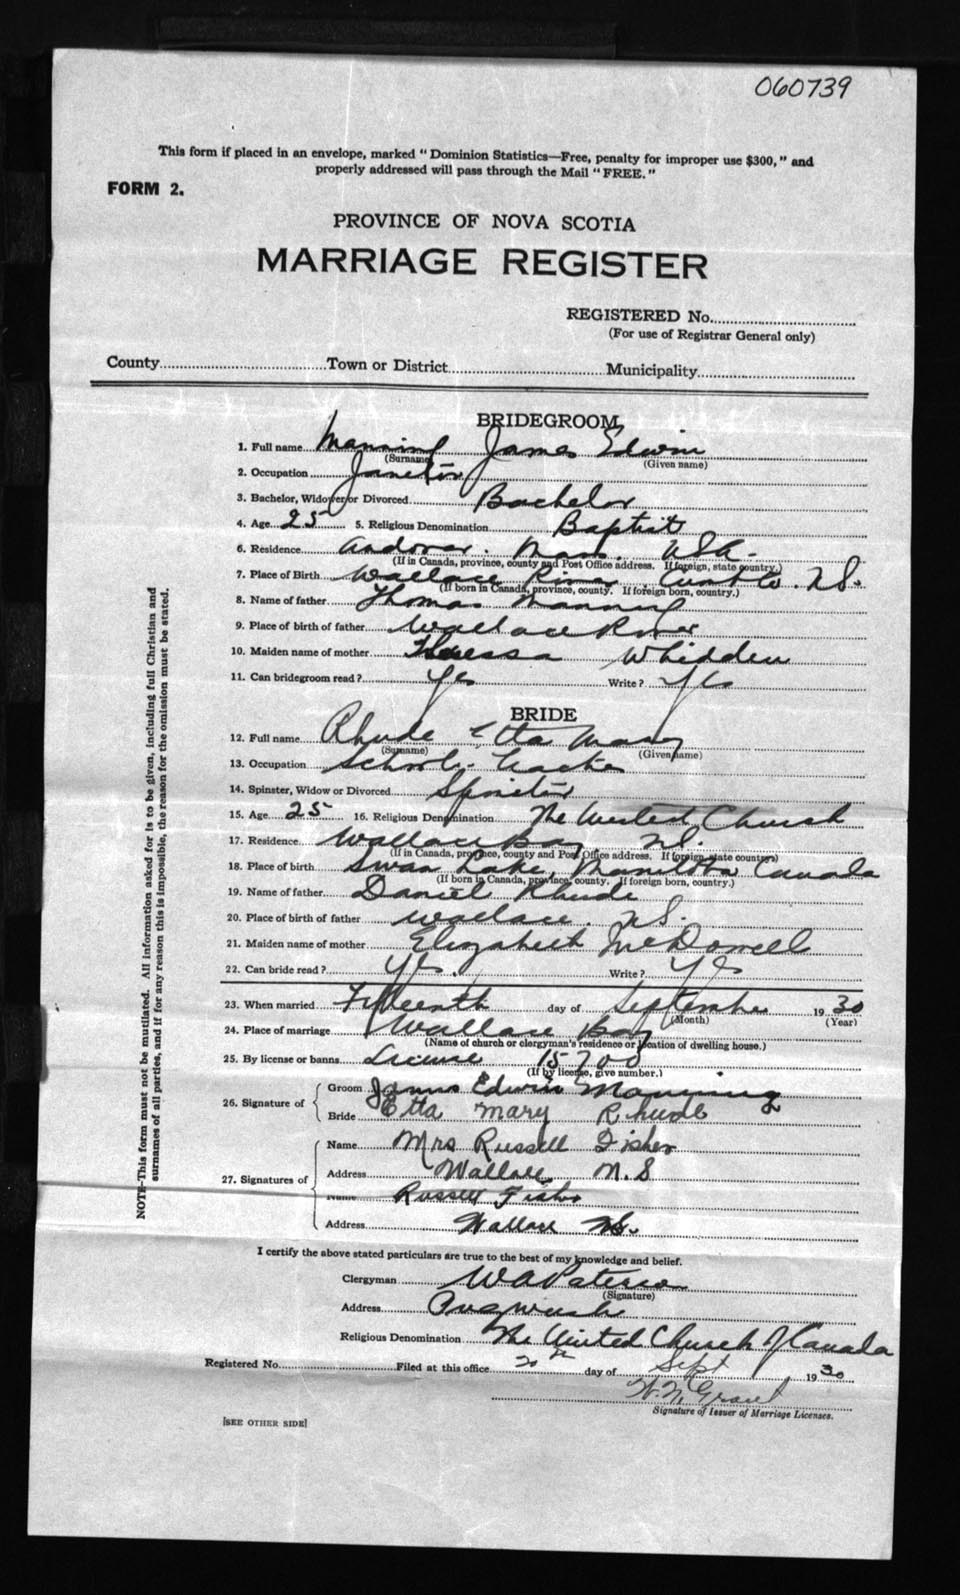 060739
This form if placed in an envelope, marked "Dominion Statistics—Free, penalty for improper use $300," and
properly addressed will pass through the Mail "FREE."
FORM 2.
PROVINCE OF NOVA SCOTIA
MARRIAGE REGISTER
REGISTERED No.
(For use of Registrar General only)
County Town or District Municipality
BRIDEGROOM
1. Full name Manning James Edwin
(Surname) (Given name)
2. Occupation Janitor
3. Bachelor, Widower or Divorced Bachelor
4. Age 25 5. Religious Denomination Baptist
6. Residence Andover. Mass. USA.
(If in Canada, province, county and Post Office address. If foreign, state country.)
7. Place of Birth Wallace River Cumb Co. N.S.
(If born in Canada, province, county. If foreign born, country.)
8. Name of father Thomas Manning
9. Place of birth of father Wallace River
10. Maiden name of mother Theressa Whidden
11. Can bridegroom read? Yes Write? Yes
BRIDE
12. Full name Rhude Etta Mary
(Surname) (Given name)
13. Occupation School-teacher
14. Spinster, Widow or Divorced Spinster
15. Age 25 16. Religious Denomination The United Church
17. Residence Wallace Bay N.S.
(If in Canada, province, county and Post Office address. If foreign, state country)
18. Place of birth Swan Lake, Manitoba Canada
(If born in Canada, province, county. If foreign born, country.)
19. Name of father Daniel Rhude
20. Place of birth of father Wallace. N.S.
21. Maiden name of mother Elizabeth McDowell
22. Can bride read? Yes. Write? Yes
23. When married Fifteenth day of September 1930
(Month) (Year)
24. Place of marriage Wallace Bay
(Name of church or clergyman's residence or location of dwelling house.)
25. By license or banns License 15700
(If by license, give number.)
26. Signature of Groom James Edwin Manning
Bride Etta Mary Rhude
27. Signatures of Name Mrs Russell Fisher
Address Wallace N.S
Name Russell Fisher
Address Wallace N.S.
I certify the above stated particulars are true to the best of my knowledge and belief.
Clergyman W A Paterson
(Signature)
Address Pugwash
Religious Denomination The United Church of Canada
Registered No. Filed at this office 20th day of Sept 1930
W. N. Grant
Signature of Issuer of Marriage Licenses.
[SEE OTHER SIDE]
NOTE—This form must not be mutilated. All information asked for is to be given, including full Christian and
surnames of all parties, and if for any reason this is impossible, the reason for the omission must be stated.